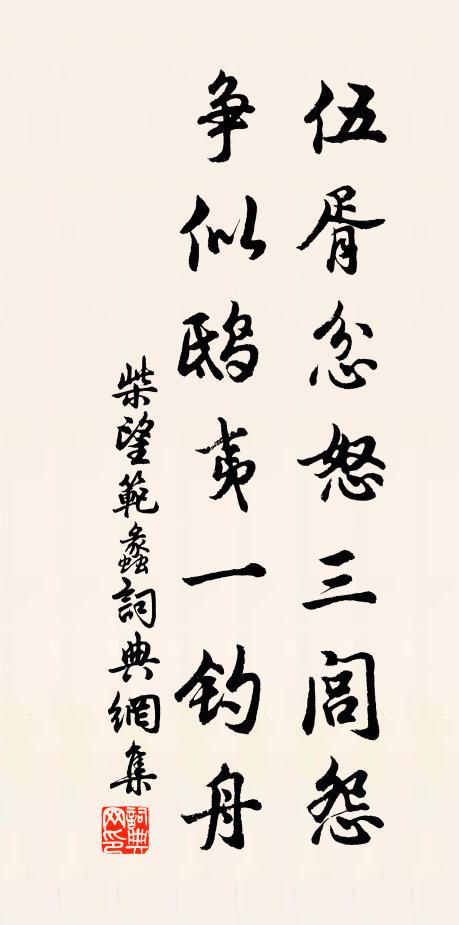 伍胥忿怒三闾怨
争似鸱夷一钓舟
柴望範蠡詞典網集
詞典網印